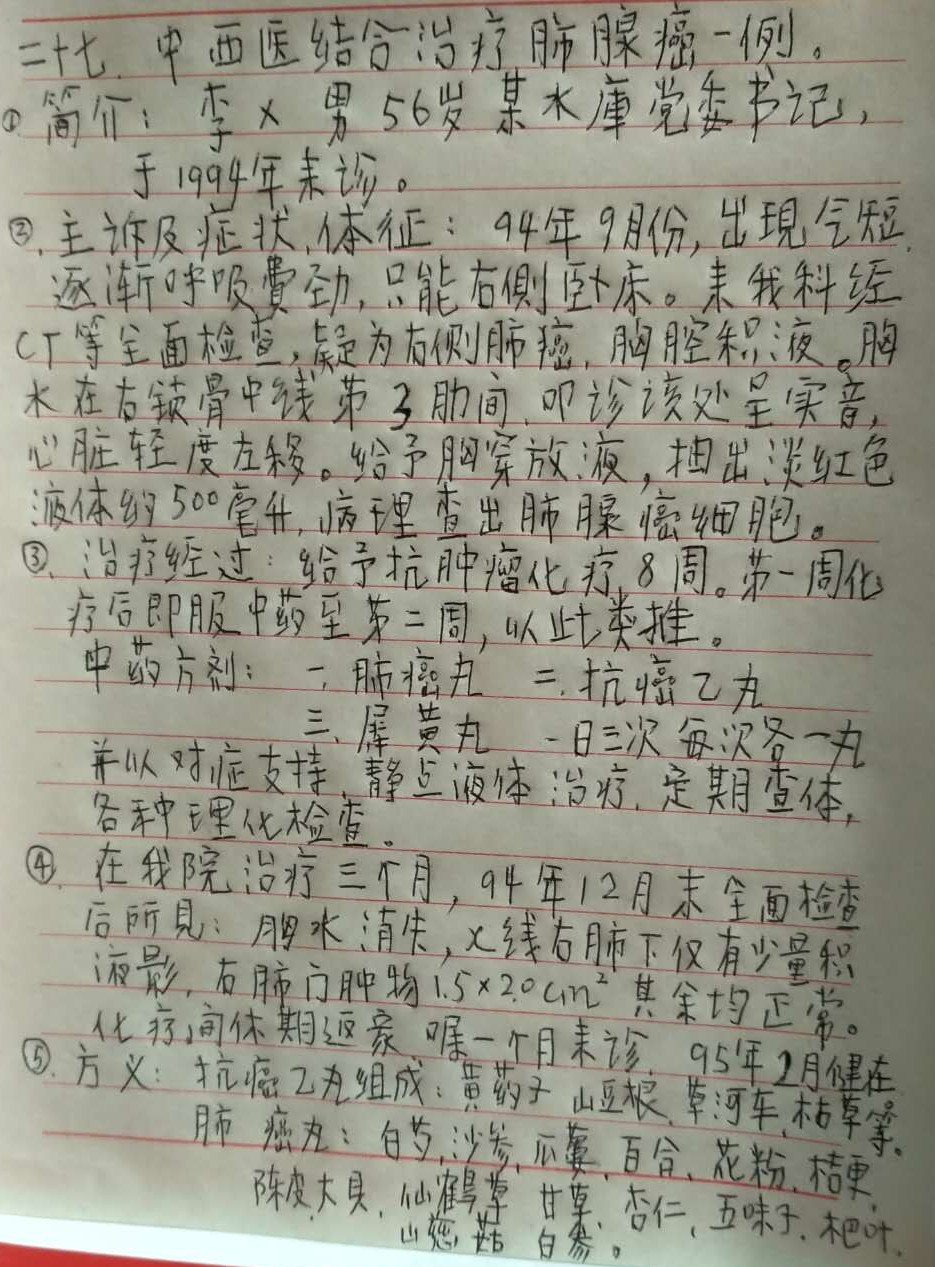 二十七、中西医结合治疗肺腺癌一例。
① 简介：李× 男 56岁 某水庫党委书记，
于1994年来诊。
②、主诉及症状、体征：94年9月份，出現气短，
逐渐呼吸費劲，只能右側卧床。来我科经
CT等全面检查，疑为右侧肺癌，胸腔积液。胸
水在右锁骨中线第3肋间，叩诊该处呈实音，
心脏轻度左移。给予胸穿放液，抽出淡红色
液体约500毫升，病理查出肺腺癌细胞。
③、治疗经过：给予抗肿瘤化疗8周。第一周化
疗后即服中药至第二周，以此类推。
中药方剂：一、肺癌丸 二、抗癌乙丸
三、犀黄丸 一日三次 每次各一丸
并以对症支持，静点液体治疗，定期查体，
各种理化检查。
④、在我院治疗三个月，94年12月末全面检查
后所見：胸水消失，X线右肺下仅有少量积
液影，右肺门肿物1.5×2.0cm² 其余均正常。
化疗间休期返家 嘱一个月来诊，95年2月健在。
⑤、方义：抗癌乙丸组成：黄药子 山豆根、草河车、枯草等。
肺癌丸：白芍、沙参、瓜蒌、百合、花粉、桔更、
陈皮、大貝、仙鶴草 甘草、杏仁、五味子、杷叶、
山慈菇 白参。